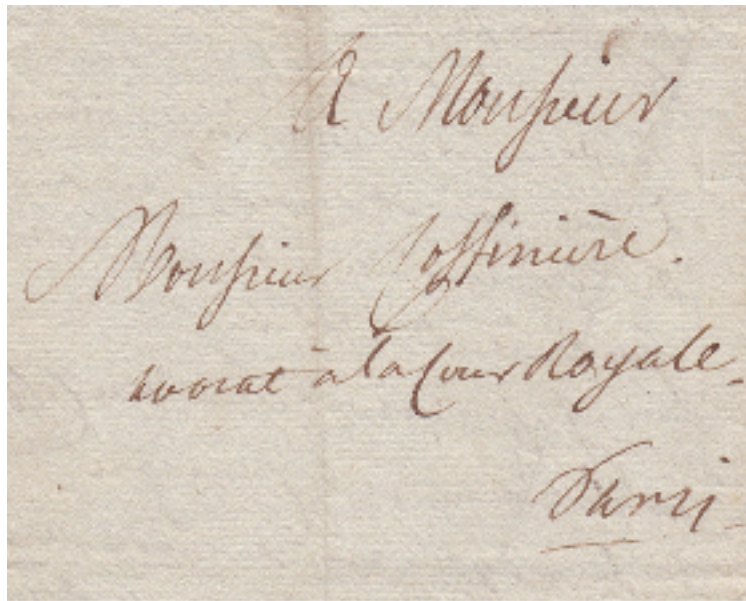 A Monsieur
Monsieur Coffinière.
avocat à la Cour Royale.
Paris